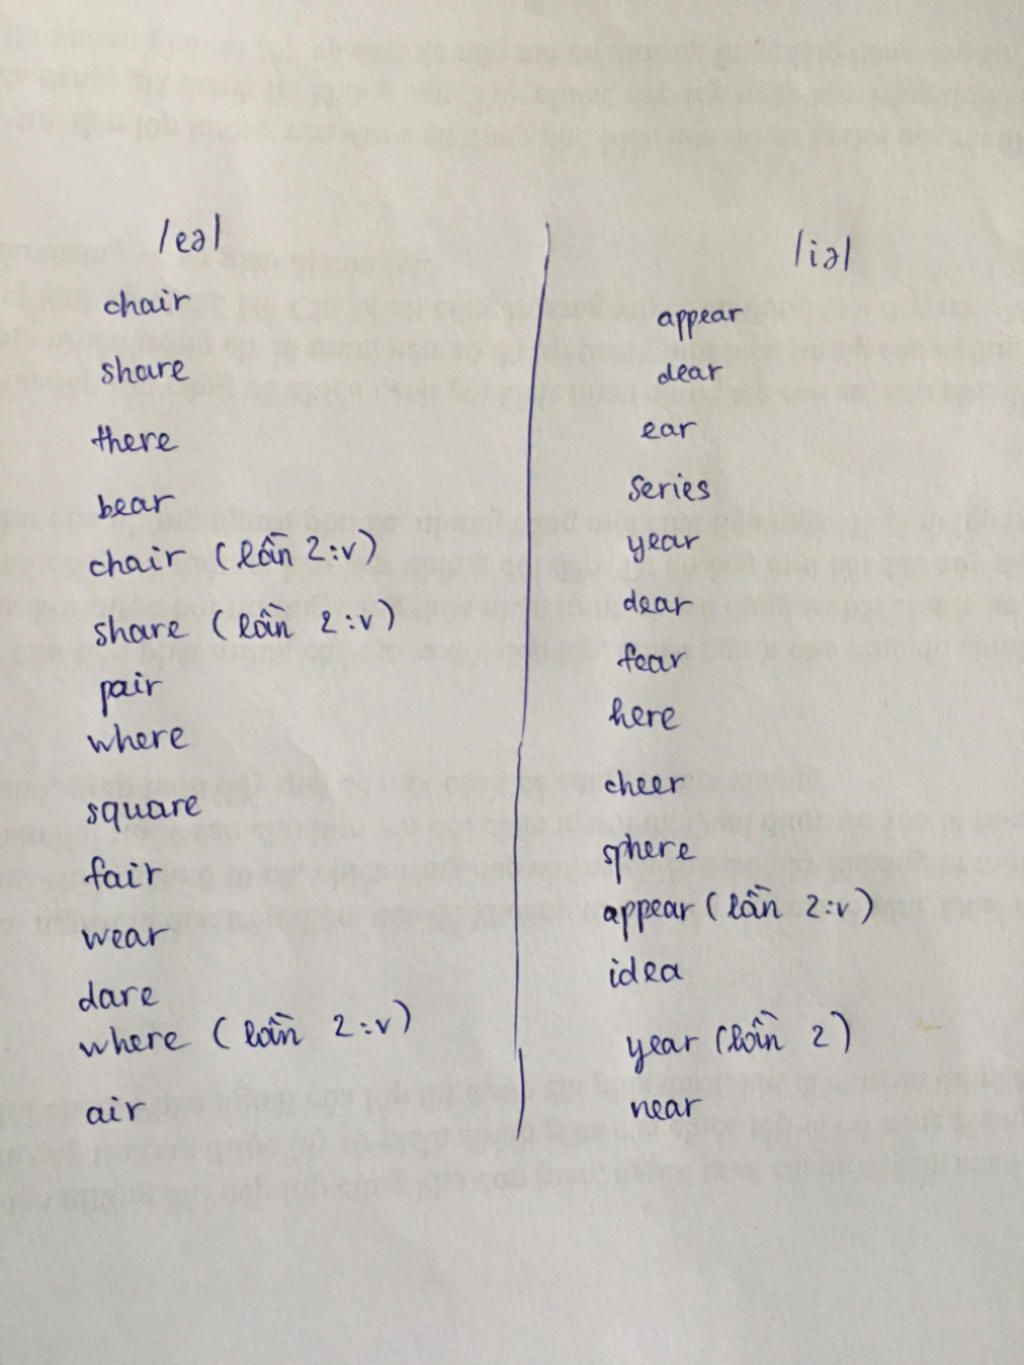 /eə/
chair
share
there
bear
chair (lần 2:v)
share (lần 2:v)
pair
where
square
fair
wear
dare
where (lần 2:v)
air
/iə/
appear
dear
ear
series
year
dear
fear
here
cheer
sphere
appear (lần 2:v)
idea
year (lần 2)
near